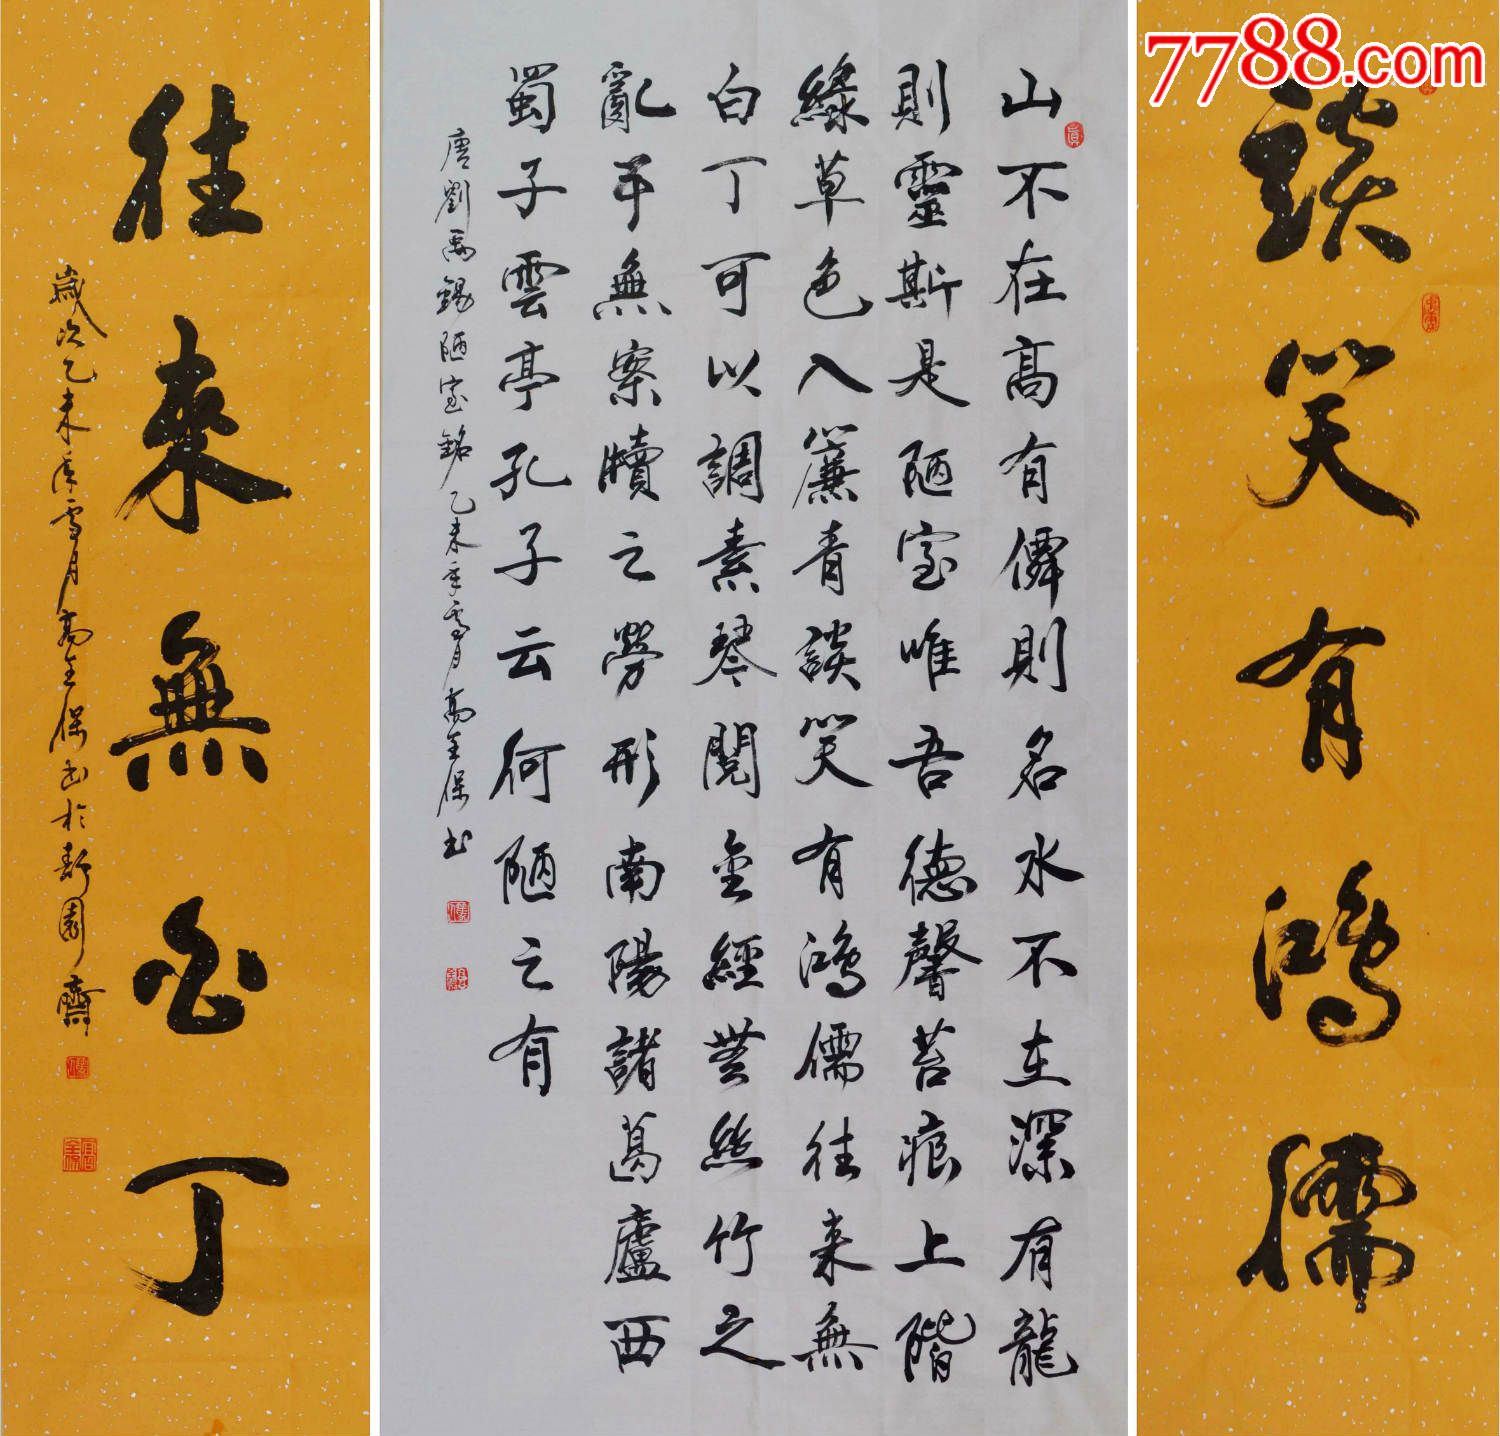 談笑有鴻儒
山不在高有僊則名水不在深有龍
則靈斯是陋室唯吾德馨苔痕上階
綠草色入簾青談笑有鴻儒往来無
白丁可以調素琴閱金經無絲竹之
亂耳無案牘之勞形南陽諸葛廬西
蜀子雲亭孔子云何陋之有
唐劉禹錫陋室銘乙未年雪月高全保书
往來無白丁
歲次乙未年雪月高全保书於園齋
7788.com